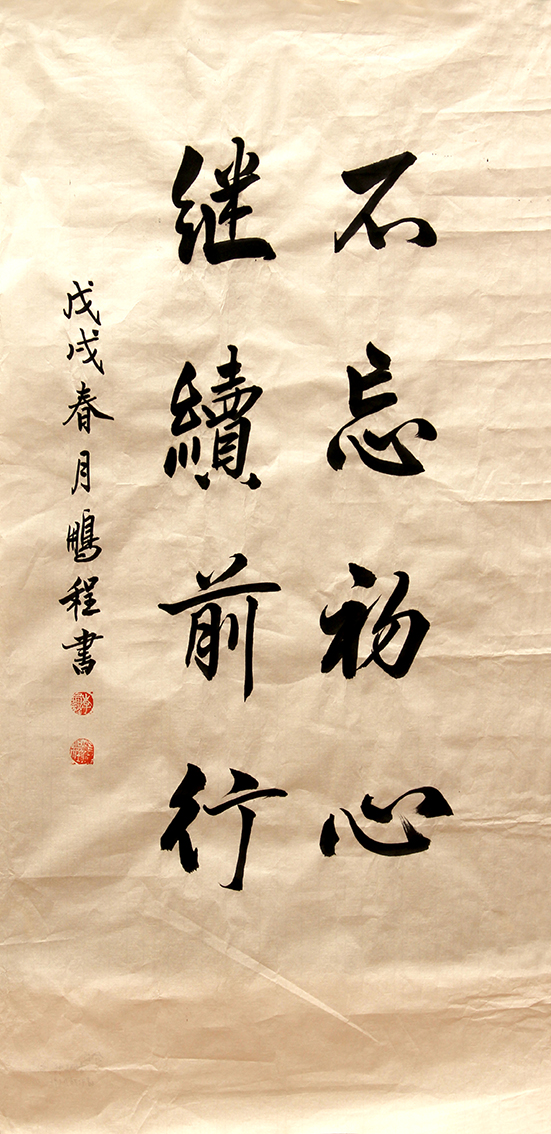 不忘初心
继續前行
戊戌春月鵬程書